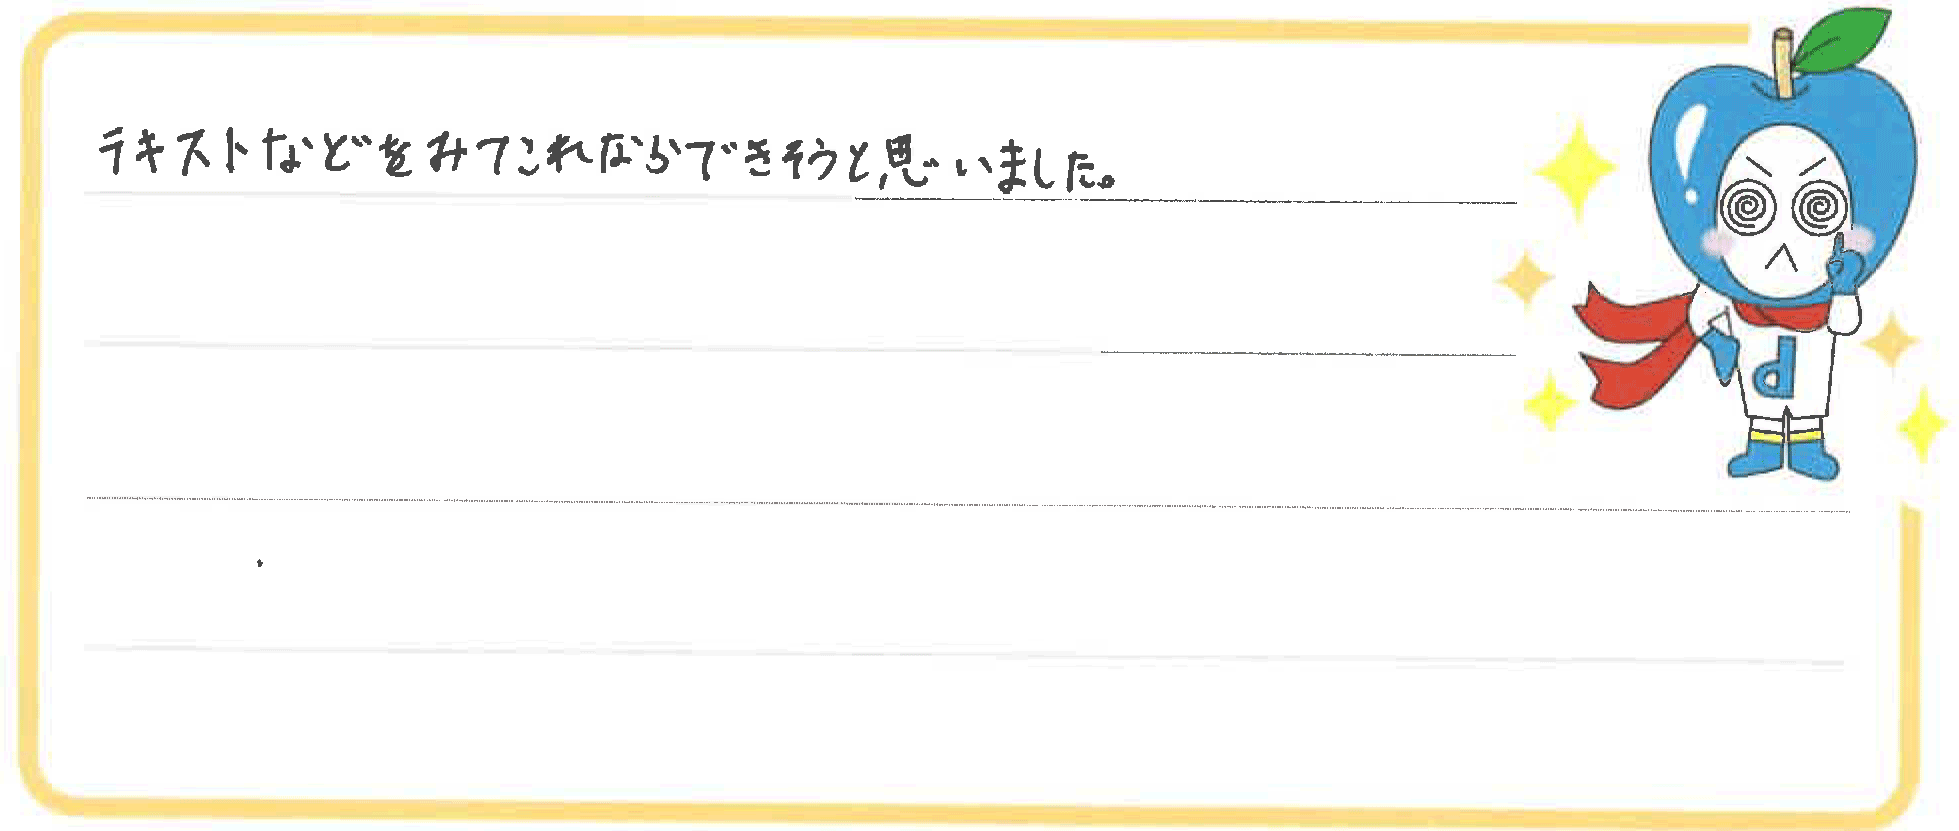 テキストなどをみてこれならできそうと思いました。
d